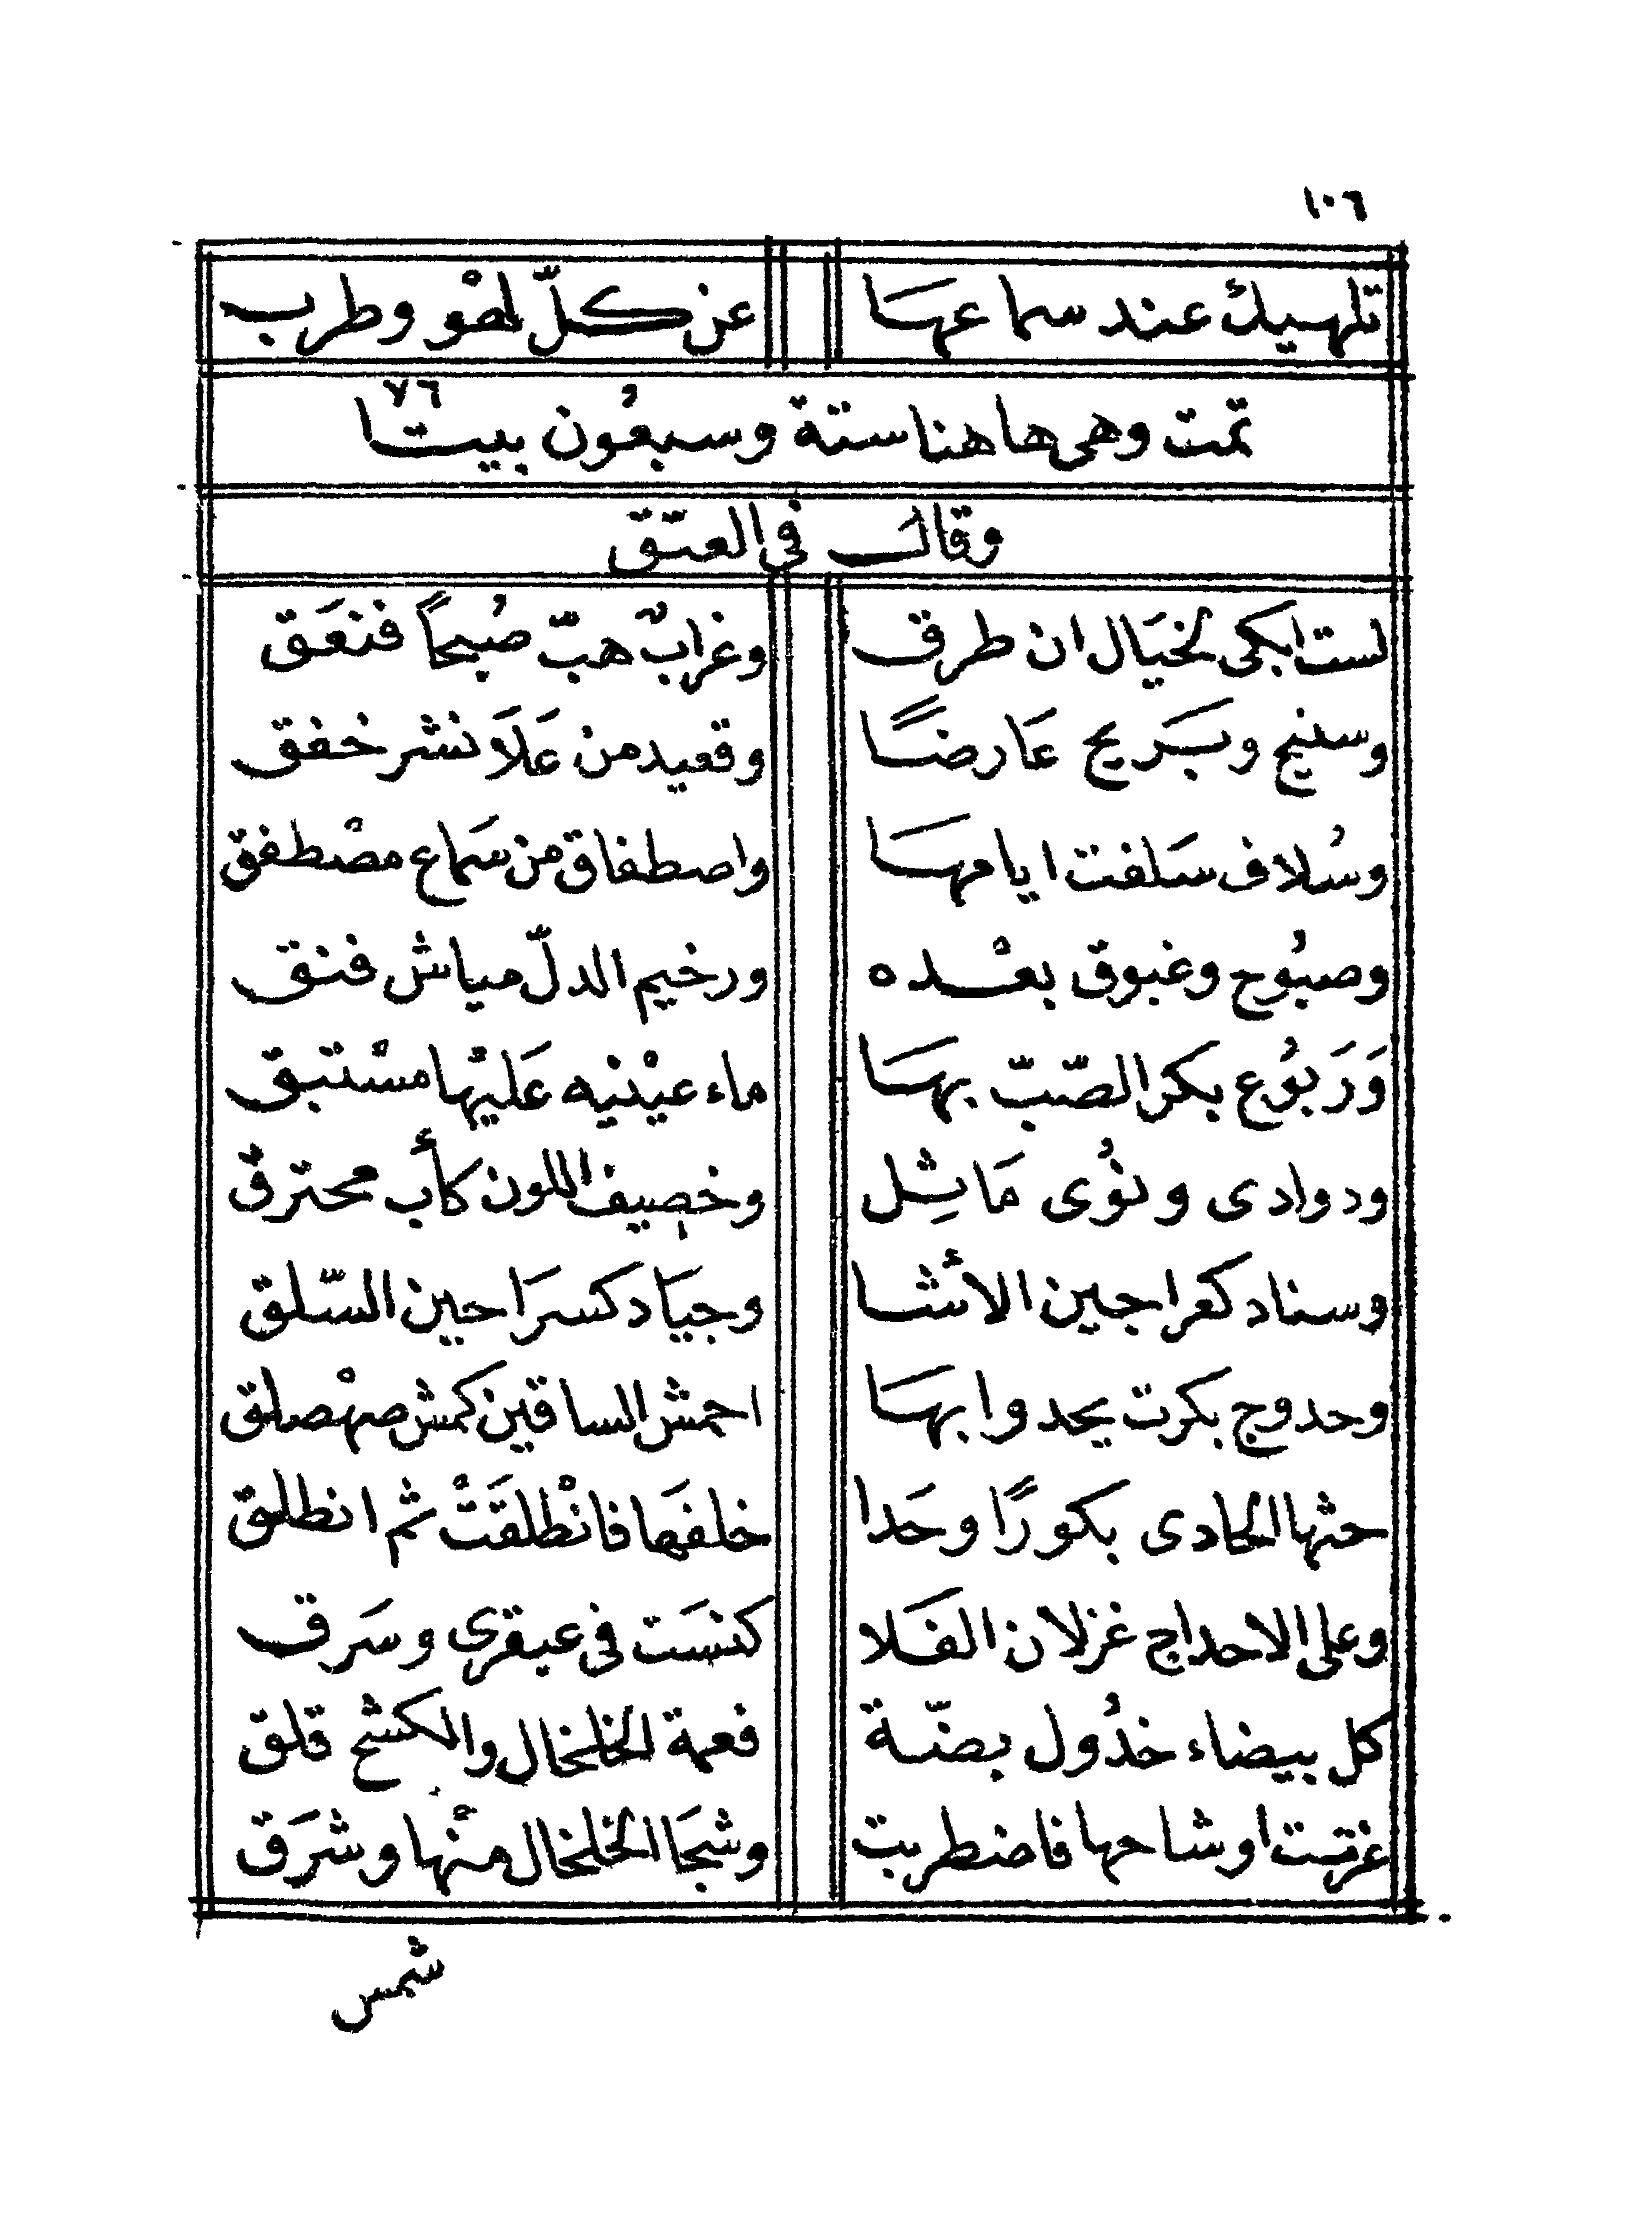 ١٠٦
تلهيك عند سماعها عن كلّ لهْو وطرب
٧٦
تمت وهى هاهنا ستة وسبعُون بيتا
وقال في العتق
لست ابكى لخيَال ان طرق وغرابٌ هبّ صُبحاً فنعَق
وسنيح وبريح عَارضًا وقعيد من عَلَا نشر خفق
وسُلاف سَلفت ايامهَا واصطفاق من سَماع مصْطفق
وصبُوح وغبوق بعْده ورخيم الدلّ مياش فنق
وَرَبُوع بكر الصّبّ بهَا ماء عيْنيْه عَليْها مسْتبق
ودوادى ونُؤى مَاثِل وخصِيف اللون كأب محترق
وسناد كعرا جين الأشا وجيَاد كسرَاحين السّلق
وحدوج بكرت يحدوا بهَا احمش الساقين كمش صهْصلق
حثها الحادى بكورًا وحَدا خلفَها فانْطلقَتْ ثم انطلق
وعلى الاحداج غزلان الفَلا كنسَت في عبقرى وسَرق
كل بيضاء خذُول بضّة فعمة الخلخال والكشح قلق
غرثت اوشاحها فاضطربت وشجَا الخلخال منْها وشَرَق
شمس